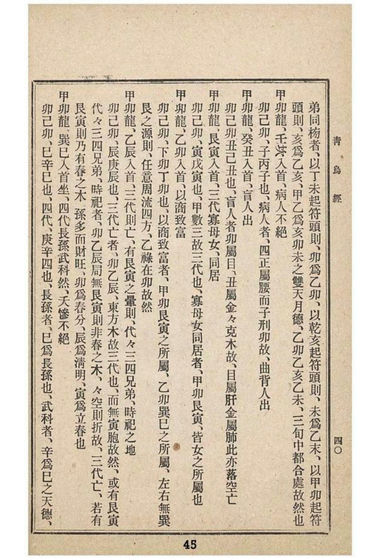 弟同榜者、以丁未起符頭則、卯爲乙卯、以乾亥起符頭則、未爲乙未、以甲卯起符
頭則、亥爲乙亥、甲乙爲亥卯未之雙天月德、乙卯乙亥乙未、三旬中都合處故然也
甲卯龍、壬子入首、病人不絕
卯己卯、子丙子也、病人者、四正屬腰而子刑卯故、曲背人出
甲卯龍、癸丑入首、盲人出
卯己卯丑己丑也、盲人者卯屬目、丑屬金々克木故、目屬肝金屬肺此亦落空亡
甲卯龍、艮寅入首、三代寡母女、同居
卯己卯、寅戊寅也、甲數三故三代也、寡母女同居者、甲卯艮寅、皆女之所屬也
甲卯龍、乙卯入首、以商致富
卯己卯、下卯丁卯也、以商致富者、甲卯艮寅之所屬、乙卯巽巳之所屬、左右無巽
艮之源則、任意周流四方、乙祿在卯故然
甲卯龍、乙辰入首、三代則亡、有艮寅之暈則、代々三四兄弟、時祀之地
卯己卯、辰庚辰也、三代亡者、卯乙辰、東方木故三代也、而無寅胞故然、或有艮寅
代々三四兄弟、時祀者、卯乙辰局無艮寅則非春之木、々空則折故、三代亡、若有
艮寅則乃有春之木、孫多而財旺、卯爲春分、辰爲淸明、寅爲立春也
甲卯龍、巽巳入首坐、四代長孫武科然、夭慘不絕
卯己卯、巳辛巳也、四代、庚辛四也、長孫者、巳爲長孫也、武科者、辛爲巳之天德、
靑烏經
四〇
45